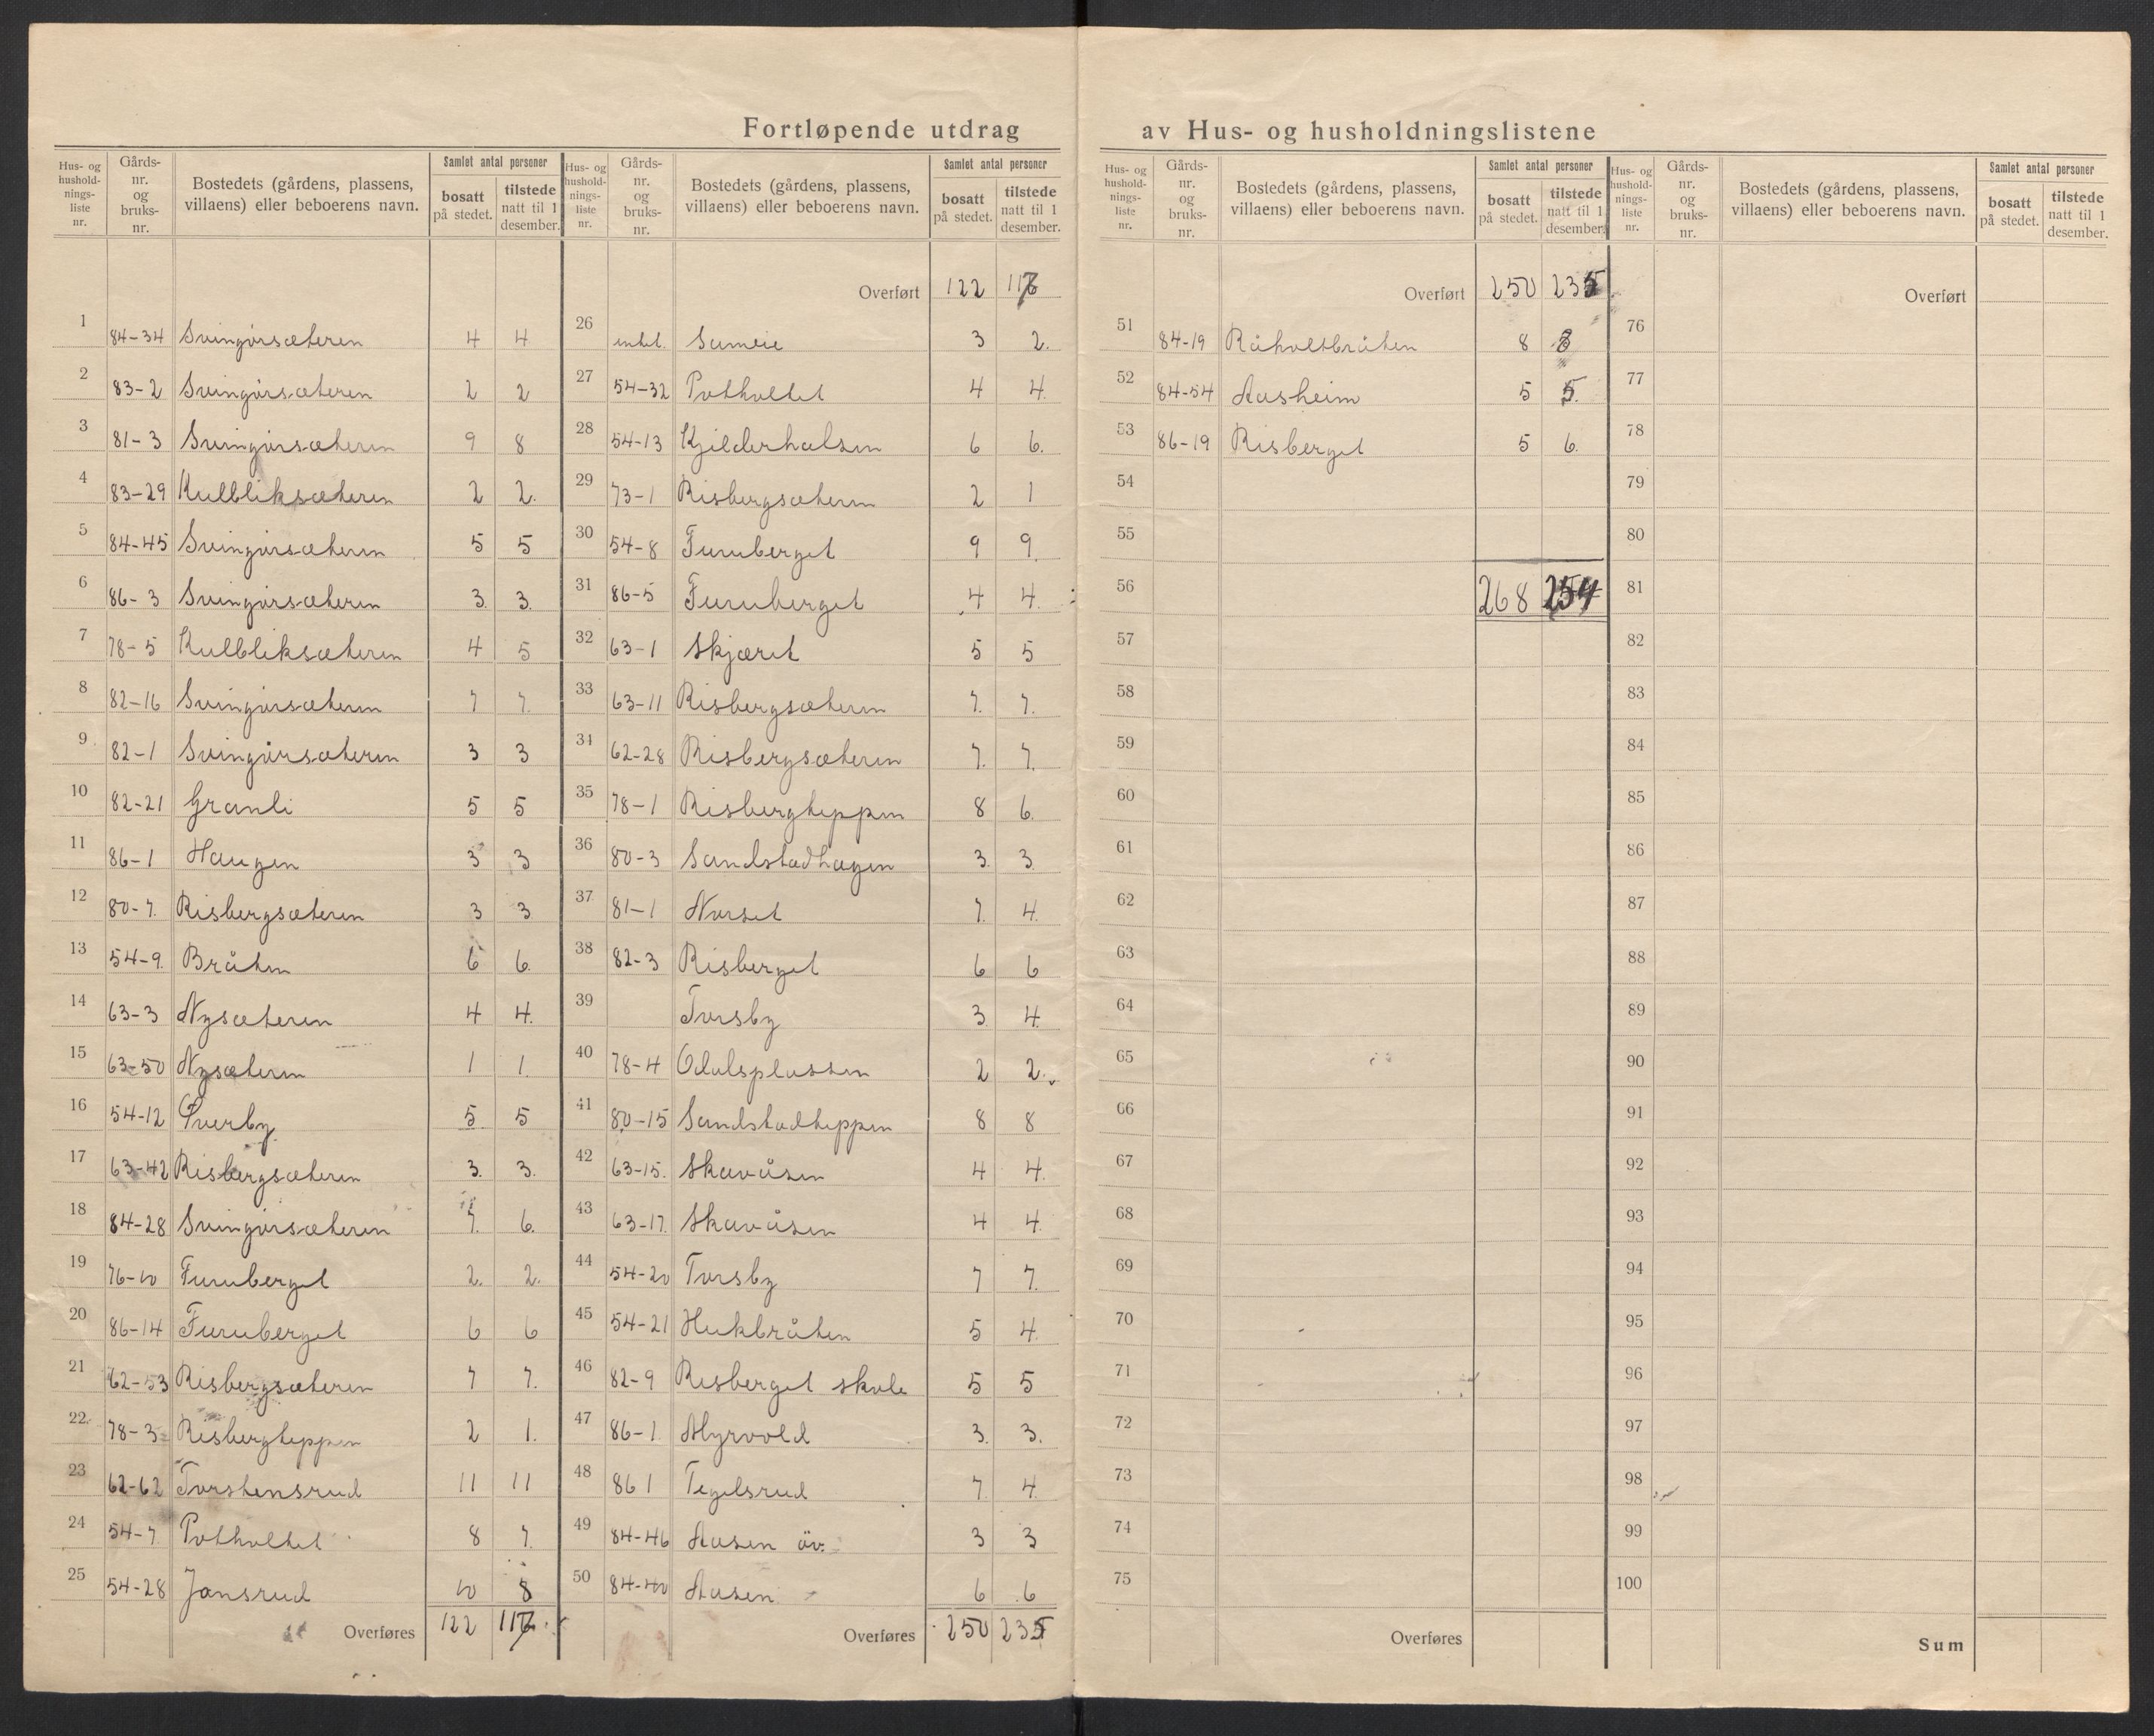 Fortløpende utdrag av Hus- og husholdningslistene
Hus- og husholdnings-liste nr. | Gårds-nr. og bruks-nr. | Bostedets (gårdens, plassens, villaens) eller beboerens navn. | Samlet antal personer | bosatt på stedet. | tilstede natt til 1 desember.
1 84-34 Svingørsæteren 4 4
2 83-2 Svingørsæteren 2 2
3 81-3 Svingørsæteren 9 8
4 83-29 Kulbliksæteren 2 2.
5 84-45 Svingørsæteren 5 5
6 86-3 Svingørsæteren 3. 3.
7 78-5 Kulbliksæteren 4 5
8 82-16 Svingørsæteren 7 7.
9 82-1 Svingørsæteren 3 3
10 82-21 Granli 5 5
11 86-1 Haugen 3 3
12 80-7. Risbergsæteren 3 3
13 54-9. Bråten 6 6.
14 63-3 Nysæteren 4 4.
15 63-50 Nysæteren 1 1.
16 54-12 Sverby 5. 5
17 63-42 Risbergsæteren 3. 3.
18 84-28 Svingørsæteren 7. 6.
19 76-10 Furuberget 2. 2.
20 86-14 Furuberget 6 6
21 62-53 Risbergsæteren 7 7.
22 78-3 Risbergteppen 2 1.
23 62-62 Torstensrud 11 11
24 54-7 Potholtet 8 7.
25 54-28 Jansrud 10 8
Overføres 122
Hus- og husholdnings-liste nr. | Gårds-nr. og bruks-nr. | Bostedets (gårdens, plassens, villaens) eller beboerens navn. | Samlet antal personer | bosatt på stedet. | tilstede natt til 1 desember.
Overført 122
26 Sameie 3 2.
27 54-32 Potholtet 4 4.
28 54-13 Kjilderhalsen 6 6.
29 73-1 Risbergsæteren 2 1
30 54-8 Furuberget 9 9.
31 86-5 Furuberget 4 4.
32 63-1 Skjæret 5 5
33 63-11 Risbergsæteren 7. 7.
34 62-28 Risbergsæteren 7. 7.
35 78-1 Risbergteppen 8 6.
36 80-3 Sandstadhagen 3. 3.
37 81-1 Norset 7. 4.
38 82-3 Risberget 6 6
39 Torsby 3. 4.
40 78-4 Odalsplassen 2 2.
41 80-15 Sandstadteppen 8 8
42 63-15. Skavåsen 4 4.
43 63-17. Skavåsen 4 4.
44 54-20 Torsby 7 7.
45 54-21 Hukbråten 5 4.
46 82-9 Risberget skole 5 5
47 86-1 Myrvold 3. 3.
48 86 1 Tegelsrud 7. 4.
49 84-46 Aasen öv. 3 3
50 84-40 Aasen 6 6
Overføres 250 235
Hus- og husholdnings-liste nr. | Gårds-nr. og bruks-nr. | Bostedets (gårdens, plassens, villaens) eller beboerens navn. | Samlet antal personer | bosatt på stedet. | tilstede natt til 1 desember.
Overført 250 235
51 84-19 Råholtbråten 8 8
52 84-54 Aasheim 5 5.
53 86-19 Risberget 5 6.
54
55
56 268 254
57
58
59
60
61
62
63
64
65
66
67
68
69
70
71
72
73
74
75
Overføres
Hus- og husholdnings-liste nr. | Gårds-nr. og bruks-nr. | Bostedets (gårdens, plassens, villaens) eller beboerens navn. | Samlet antal personer | bosatt på stedet. | tilstede natt til 1 desember.
Overført
76
77
78
79
80
81
82
83
84
85
86
87
88
89
90
91
92
93
94
95
96
97
98
99
100
Sum